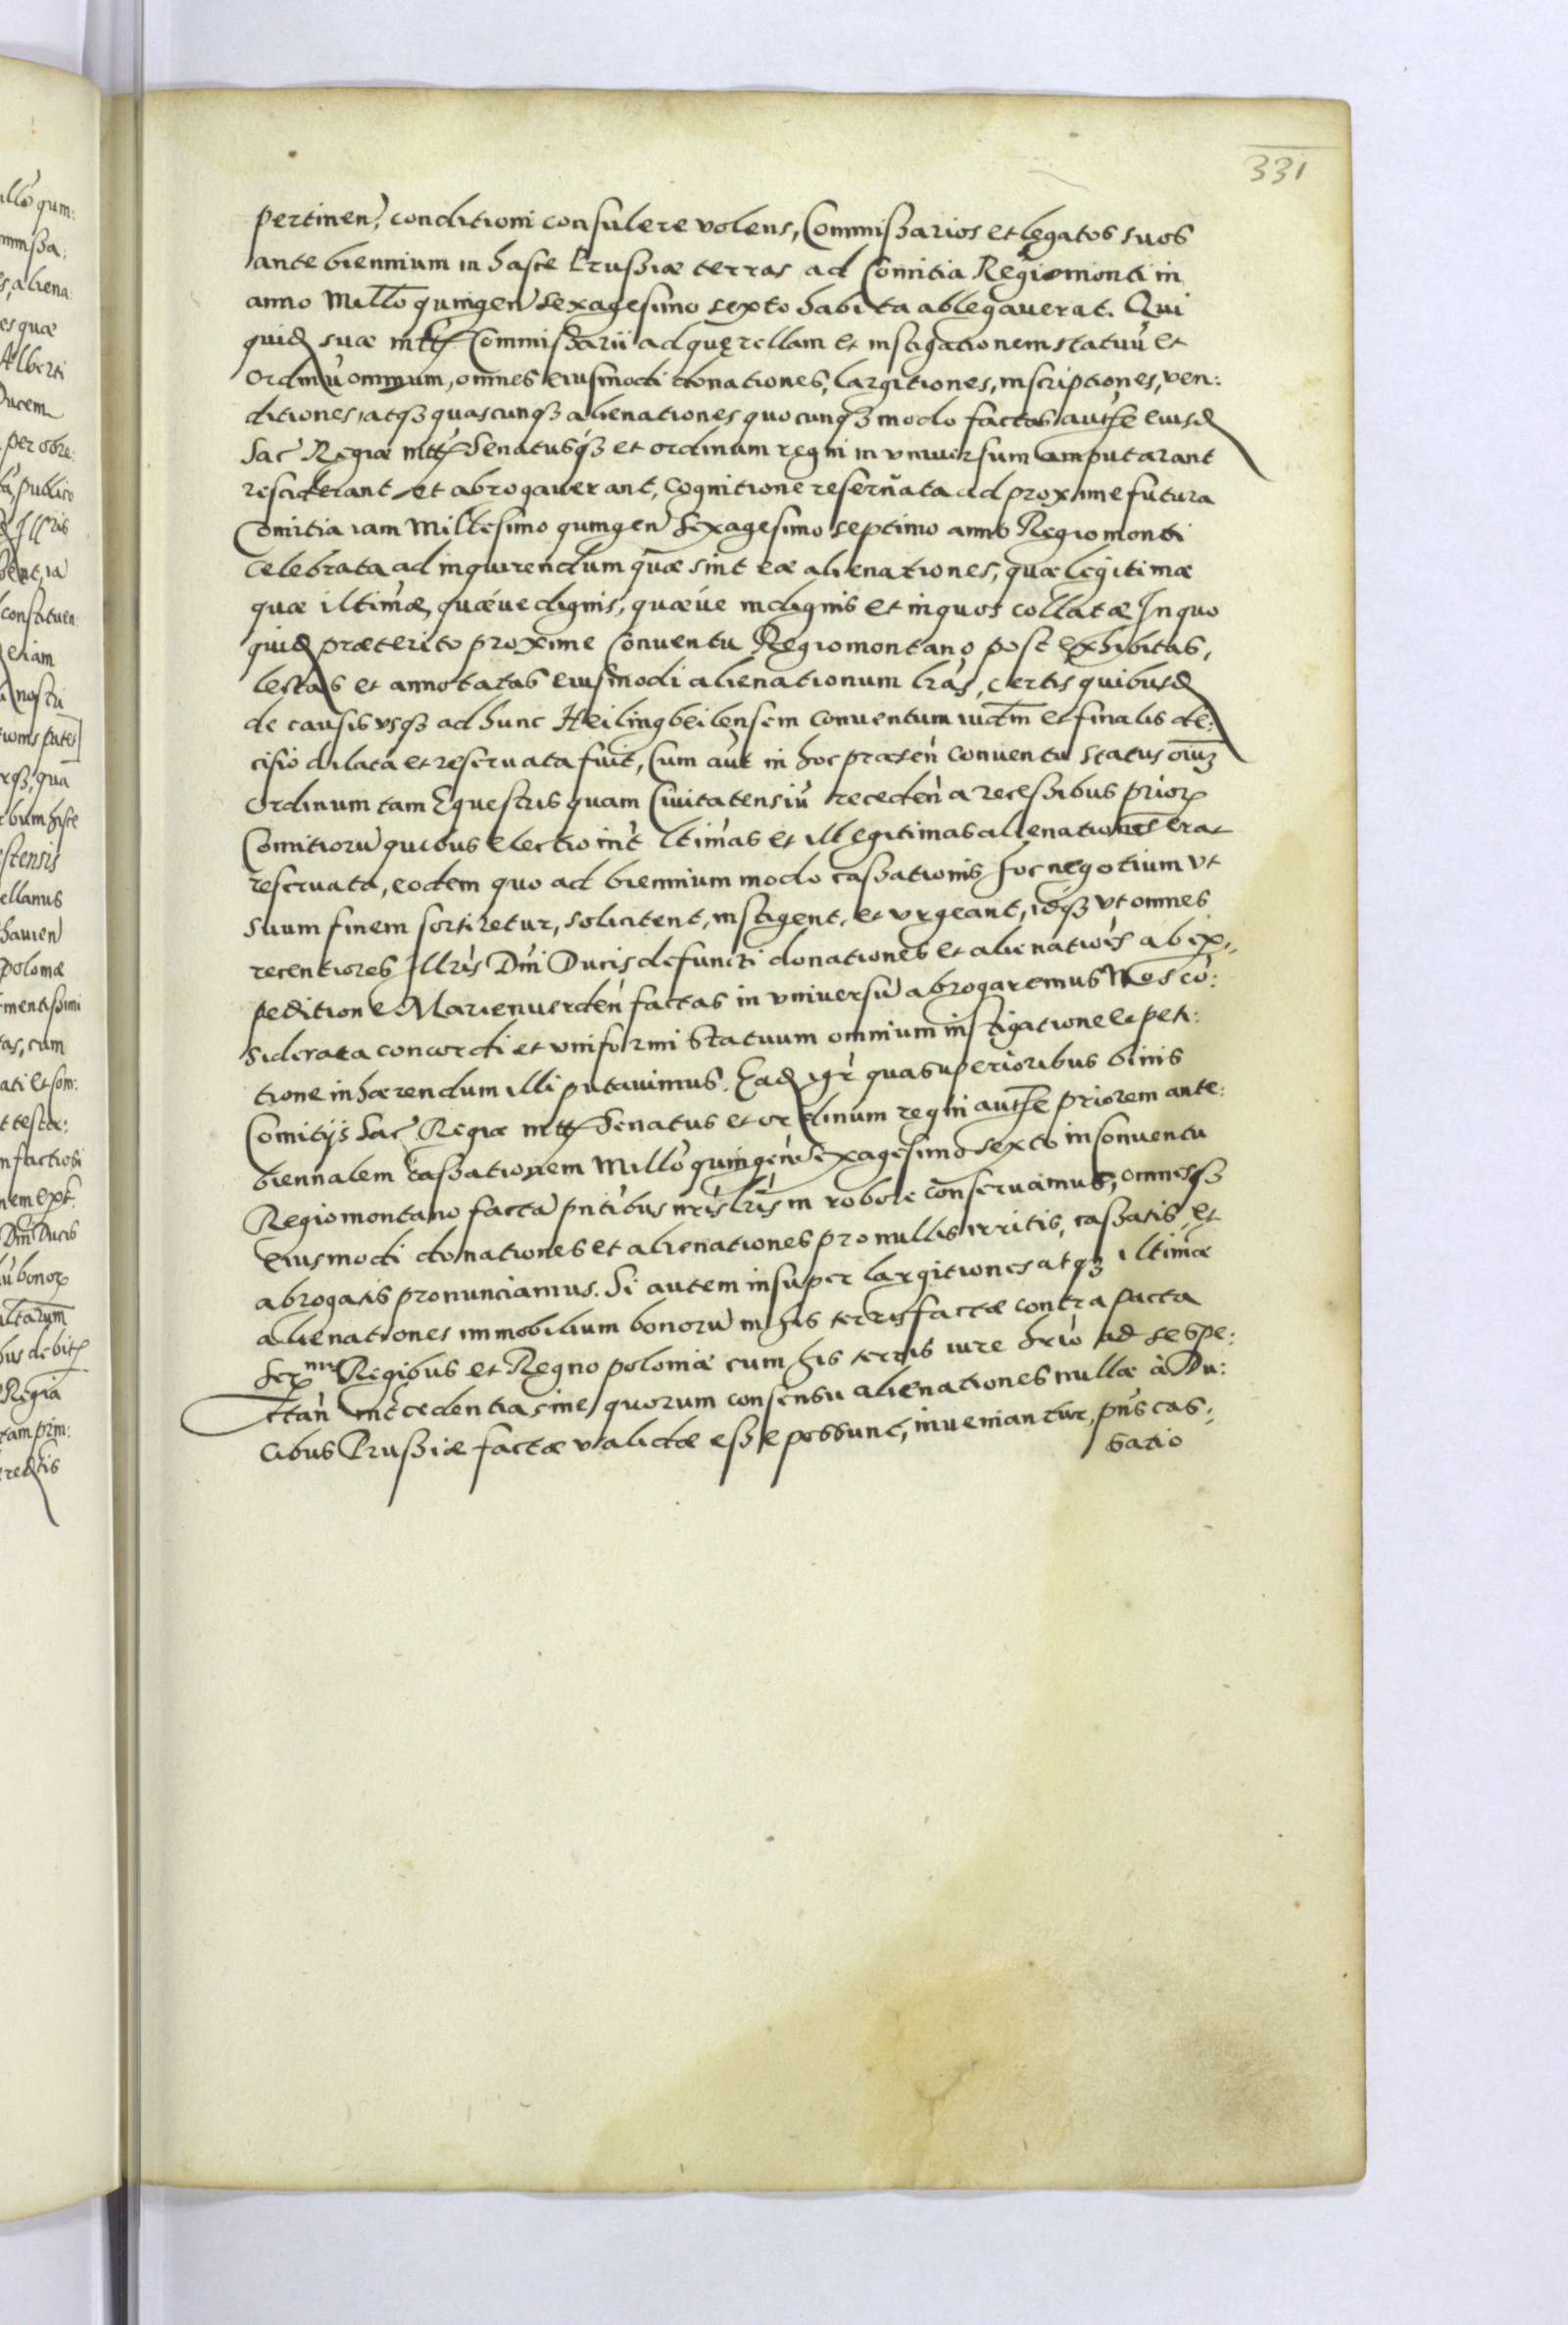 331
pertinen̄, conditioni consulere volens, Commissarios et legatos suos
ante biennium in hasce Prussiæ terras ad Comitia Regiomonti in
anno Millō quingen̄ sexagesimo sexto habita ablegaverat. Qui
quid̄ suæ mtt̄ Commissarii ad querellam et instigationem statuū et
ordinū omnium, omnes eiusmodi donationes, largitiones, inscriptiones, ven:
ditiones, atqꝫ quascunqꝫ alienationes quocunqꝫ modo factas autħe eiusd̄
Sac̄ Regiæ mtt̄ Senatusqꝫ et ordinum regni in vniuersum amputarant
resciderant et abrogauerant, cognitione reseruata ad proxime futura
Comitia iam Millesimo quingen̄ sexagesimo septimo anno Regiomonti
celebrata ad inquirendum quæ sint eæ alienationes, quæ legitimæ
quæ iltimæ, quæue dignis, quæue indignis et in quos collatæ In quo
quid̄ præterito proxime Conuentu Regiomontano post exhibitas,
lectas et annotatas eiusmodi alienationum lr̄as, certis quibusd̄
de causis vsqꝫ ad hunc Heilingbeilensem conuentum iud̄m et finalis de:
cisio dilata et reseruata fuit, Cum aūt in hoc præsen̄ conuentu status oīuꝫ
Ordinum tam Equestris quam Ciuitatensiū receden̄ a recessibus prioꝝ
Comitiorū quibus electio int̄ ltimas et illegitimas alienationes erat
reseruata, eodem quo ad biennium modo cassationis hoc negotium vt
suum finem sortiretur, solicitent, instigent, et vrgeant, idqꝫ vt omnes
recentiores Illr̄is Dn̄i Ducis defuncti donationes et alienatiōis ab ex:
peditione Marienuerden̄ factas in vniuersū abrogaremus Nos cō:
siderata concordi et vniformi Statuum omnium instigatione et peti:
tione inhærendum illi putauimus. Ead̄ igr̄ qua superioribus binis
Comitijs Sac̄ Regiæ mtt̄ Senatus et ordinum regni autħe priorem ante:
biennalem cassationem Millō quingen̄ sexagesimo sexto in Conuentu
Regiomontano factā pn̄tibus nr̄is lr̄is in robore conseruamus, omnesqꝫ
eiusmodi donationes et alienationes pro nullis irritis, cassatis et
abrogatis pronunciamus. Si autem insuper largitiones atqꝫ iltimæ
alienationes immobilium bonorū in his terris factæ contra pacta
Serᵐⁱˢ Regibus et Regno poloniæ cum his terris iure hr̄io ad se spe:
ctan̄ int̄cedentia sine quorum consensu alienationes nullæ à Du:
cibus Prussiæ factæ validæ esse possunt, inueniantur, pn̄s cas:
satio